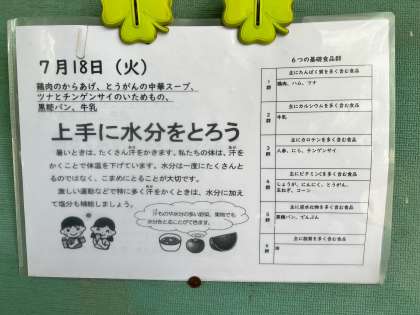 7月18日（火）
鶏肉のからあげ、とうがんの中華スープ、
ツナとチンゲンサイのいためもの、
黒糖パン、牛乳
上手に水分をとろう
暑いときは、たくさん汗をかきます。私たちの体は、汗を
かくことで体温を下げています。水分は一度にたくさんと
るのではなく、こまめにとることが大切です。
激しい運動などで特に多く汗をかくときは、水分に加え
て塩分も補給しましょう。
汁ものや水分の多い野菜、果物でも
水分をとることができます。
6つの基礎食品群
1群
主にたんぱく質を多く含む食品
鶏肉、ハム、ツナ
2群
主にカルシウムを多く含む食品
牛乳
3群
主にカロテンを多く含む食品
人参、にら、チンゲンサイ
4群
主にビタミンCを多く含む食品
しょうが、にんにく、とうがん、
玉ねぎ、コーン
5群
主に炭水化物を多く含む食品
黒糖パン、でんぷん
6群
主に脂質を多く含む食品
油